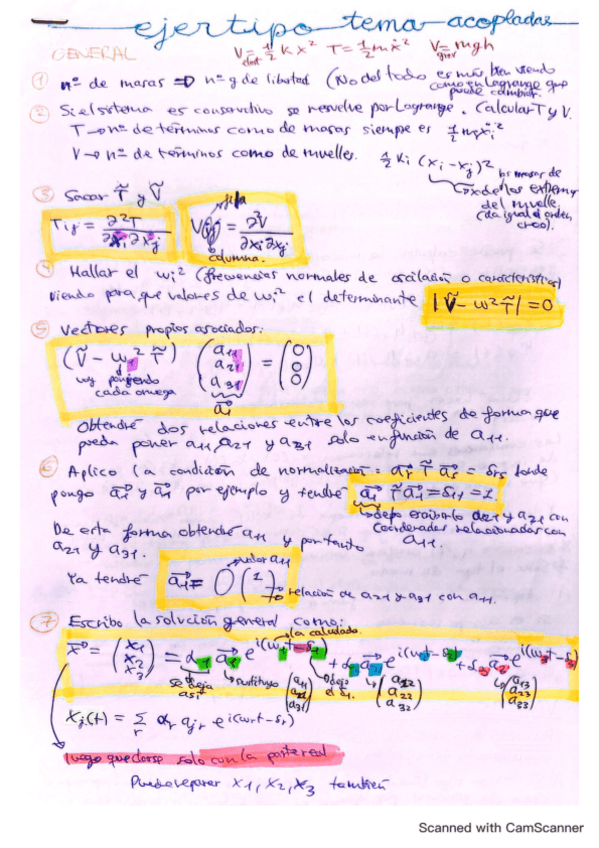 ejertipo tema acopladas
GENERAL V = 1/2 K x² T = 1/2 m ẋ² V = mgh
① nº de masas => nº g de libertad (No del todo es más bien viendo
como en Lagrange que
puede cambiar.
② Si el sistema es conservativo se resuelve por Lagrange. Calcular T y V.
T → nº de términos como de masas siempre es 1/2 m ẋi²
V → nº de términos como de muelles. 1/2 Ki (xi - xj)²
las masas de
x de los extremos
del muelle.
(da igual el orden,
creo).
③ Sacar T̃ y Ṽ
fila
Tij = ∂²T / ∂ẋi ∂ẋj V(ij) = ∂²V / ∂xi ∂xj
columna.
④ Hallar el wi² (frecuencias normales de oscilación o características)
viendo para que valores de wi² el determinante |Ṽ - w² T̃| = 0
⑤ Vectores propios asociados:
(Ṽ - w1² T̃) (a11 a21 a31) = (0 0 0)
voy poniendo
cada omega
a1
Obtendré dos relaciones entre los coeficientes de forma que
pueda poner a11, a21 y a31 solo en función de a11.
⑥ Aplico la condición de normalización: ar T̃ as = δrs donde
pongo a1 y a1 por ejemplo y tendré a1 T̃ a1 = δ11 = 1
dejo escribirlo a21 y a31 con
coordenadas relacionadas con
a11.
De esta forma obtendré a11 y por tanto
a21 y a31.
valor a11
Ya tendré a1 = O (1
relación de a21 y a31 con a11.
⑦ Escribo la solución general como:
la calculada.
x = (x1 x2 x3) = α1 a1 e^i(w1t - δ1) + α2 a2 e^i(w2t - δ2) + α3 a3 e^i(w3t - δ3)
se deja
así
sustituyo
(a11 a21 a31)
dejo
el δ1.
(a12 a22 a32)
(a13 a23 a33)
xj(t) = Σr αr ajr e^i(wrt - δr)
luego quedarse solo con la parte real
Puedo separar x1, x2, x3 también
Scanned with CamScanner